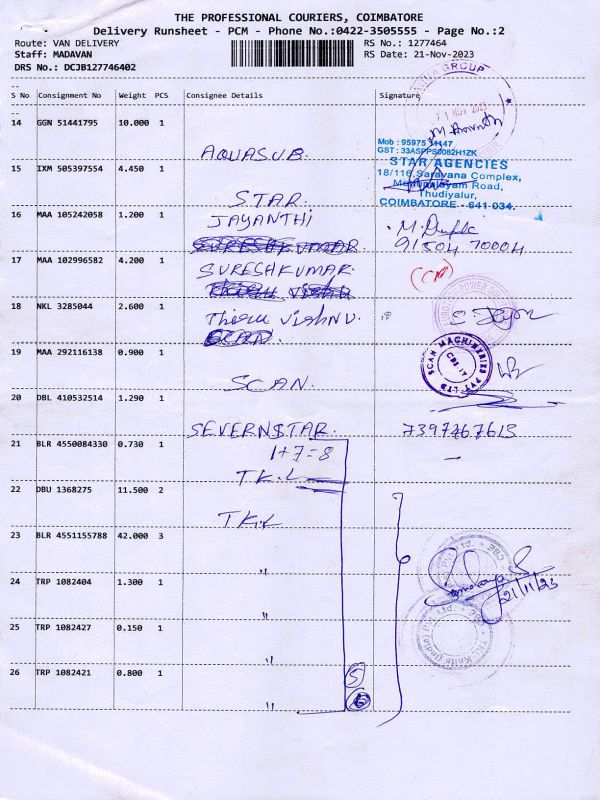 THE PROFESSIONAL COURIERS, COIMBATORE
Delivery Runsheet - PCM - Phone No.:0422-3505555 - Page No.:2
Route: VAN DELIVERY
RS No.: 1277464
Staff: MADAVAN
RS Date: 21-Nov-2023
DRS No.: DCJB127746402
S No Consignment No Weight PCS Consignee Details Signature
14 GGN 51441795 10.000 1
AQUASUB.
21 NOV 2023
Mob : 95975
GST : 33ASPPS0082H1ZK
STAR AGENCIES
18/116, Saravana Complex,
Road,
Thudiyalur,
COIMBATORE - 641 034.
15 IXM 505397554 4.450 1
STAR.
16 MAA 105242058 1.200 1
JAYANTHI
91504 70004
17 MAA 102996582 4.200 1
SURESHKUMAR.
18 NKL 3285044 2.600 1
Thiru vishnu.
19 MAA 292116138 0.900 1
SCAN.
SCAN MACHINERIES PVT LTD
20 DBL 410532514 1.290 1
SEVERNSTAR.
7397267613
21 BLR 4550084330 0.730 1
1+7=8
T.K.L
22 DBU 1368275 11.500 2
T.K.L
23 BLR 4551155788 42.000 3
"
21/11/23
24 TRP 1082404 1.300 1
"
25 TRP 1082427 0.150 1
"
26 TRP 1082421 0.800 1
5
6
"